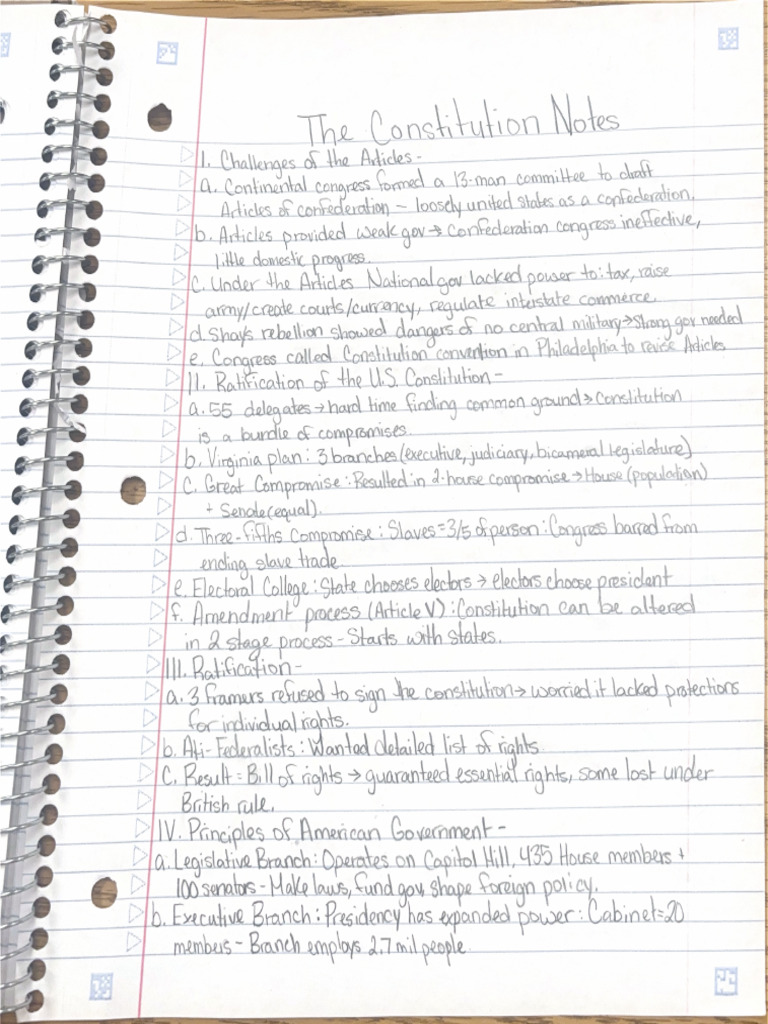 The Constitution Notes
I. Challenges of the Articles -
a. Continental congress formed a 13-man committee to draft
Articles of confederation - loosely united states as a confederation.
b. Articles provided weak gov → Confederation congress ineffective,
little domestic progress.
C. Under the Articles National gov lacked power to: tax, raise
army/create courts/currency, regulate interstate commerce.
d. Shays rebellion showed dangers of no central military → Strong gov needed
e. Congress called Constitution convention in Philadelphia to revise Articles.
II. Ratification of the U.S. Constitution -
a. 55 delegates → hard time finding common ground → Constitution
is a bundle of compromises.
b. Virginia plan: 3 branches (executive, judiciary, bicameral legislature)
C. Great Compromise: Resulted in 2-house compromise → House (population)
+ Senate (equal).
d. Three-fifths Compromise: Slaves = 3/5 of person: Congress barred from
ending slave trade
e. Electoral College: State chooses electors → electors choose president
f. Amendment process (Article V): Constitution can be altered
in 2 stage process - Starts with states.
III. Ratification -
a. 3 framers refused to sign the constitution → worried it lacked protections
for individual rights.
b. Ati-Federalists: Wanted detailed list of rights
C. Result = Bill of rights → guaranteed essential rights, some lost under
British rule.
IV. Principles of American Government -
a. Legislative Branch: Operates on Capitol Hill, 435 House members +
100 senators - Make laws, fund gov, shape foreign policy.
b. Executive Branch: Presidency has expanded power: Cabinet=20
members - Branch employs 2.7 mil people